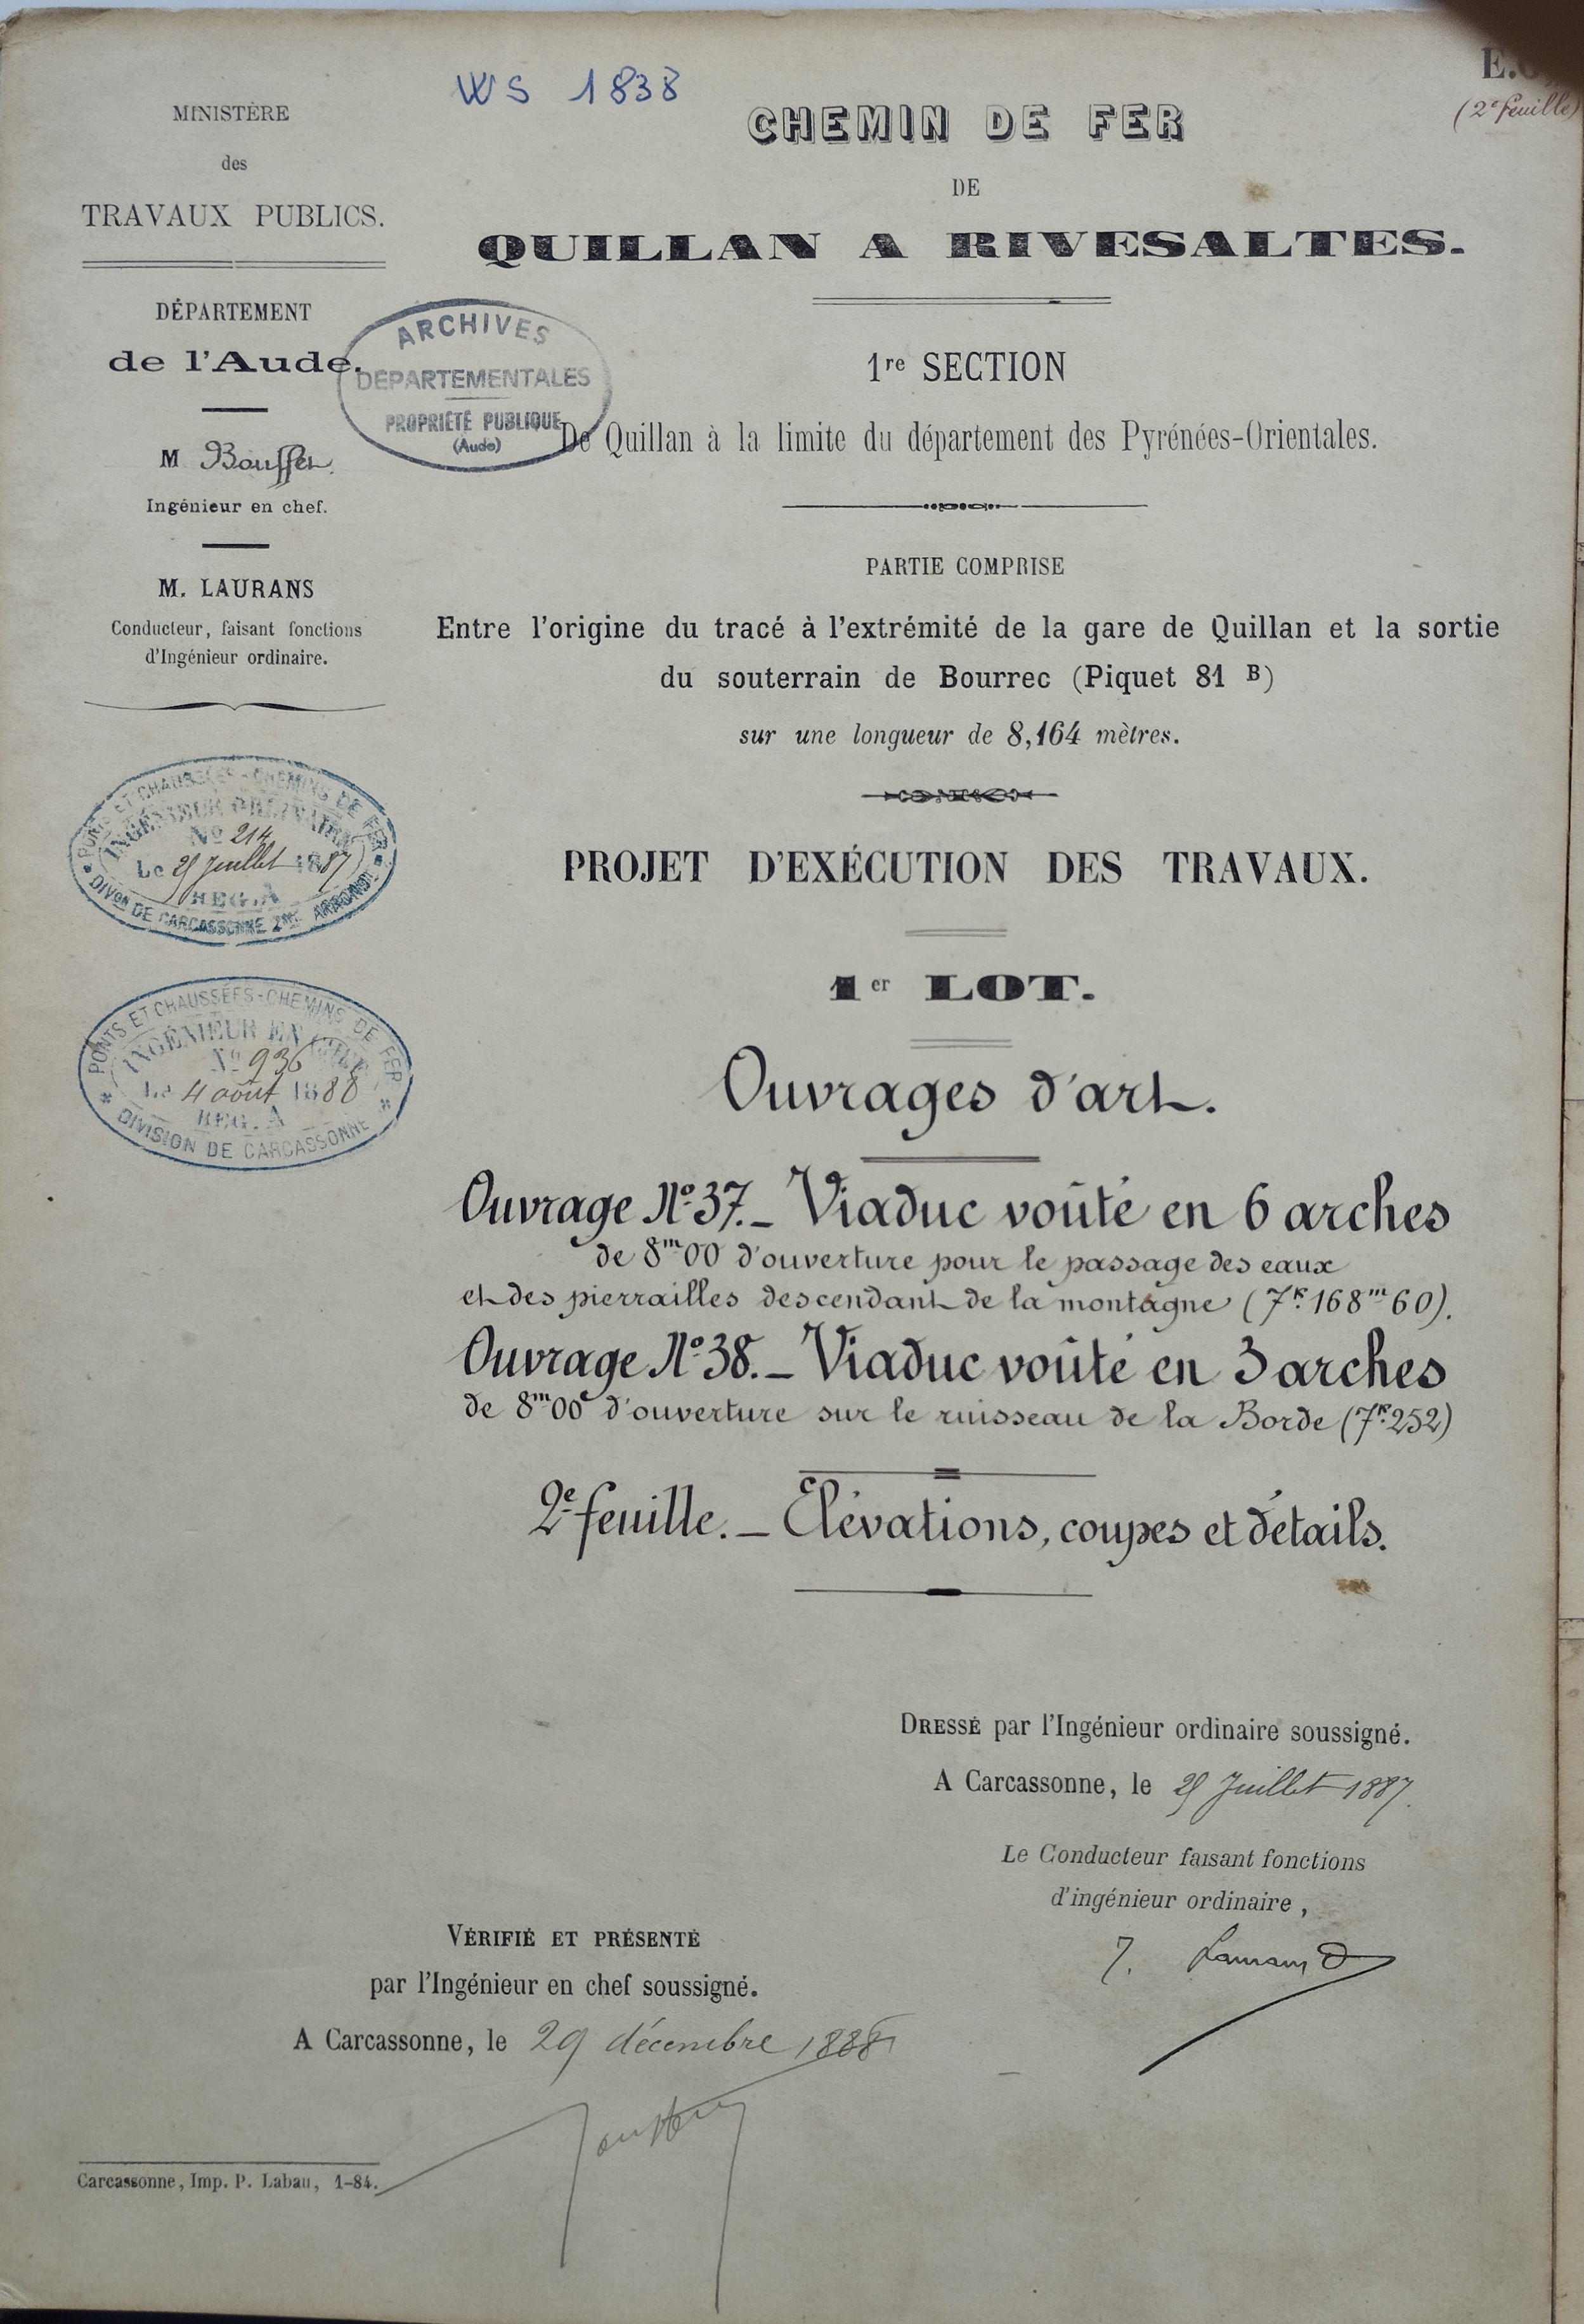 WS 1838
(2e feuille)
MINISTÈRE
des
TRAVAUX PUBLICS.
DÉPARTEMENT
de l'Aude.
M Bouffet
Ingénieur en chef.
M. LAURANS
Conducteur, faisant fonctions
d'Ingénieur ordinaire.
ARCHIVES
DEPARTEMENTALES
PROPRIÉTÉ PUBLIQUE
(Aude)
PONTS ET CHAUSSÉES - CHEMINS DE FER
INGÉNIEUR ORDINAIRE
No 214
Le Juillet 1887
REG. A
DIVon DE CARCASSONNE ARRONDt
PONTS ET CHAUSSÉES - CHEMINS DE FER
INGÉNIEUR EN CHEF
No 936
Le 4 août 1888
REG. A
DIVISION DE CARCASSONNE
CHEMIN DE FER
DE
QUILLAN A RIVESALTES.
1re SECTION
De Quillan à la limite du département des Pyrénées-Orientales.
PARTIE COMPRISE
Entre l'origine du tracé à l'extrémité de la gare de Quillan et la sortie
du souterrain de Bourrec (Piquet 81 B)
sur une longueur de 8,164 mètres.
PROJET D'EXÉCUTION DES TRAVAUX.
1er LOT.
Ouvrages d'art.
Ouvrage No 37. – Viaduc voûté en 6 arches
de 8m00 d'ouverture pour le passage des eaux
et des pierrailles descendant de la montagne (7K.168m60).
Ouvrage No 38. – Viaduc voûté en 3 arches
de 8m00 d'ouverture sur le ruisseau de la Borde (7K.252)
2e feuille. – Élévations, coupes et détails.
DRESSÉ par l'Ingénieur ordinaire soussigné.
A Carcassonne, le Juillet 1887.
Le Conducteur faisant fonctions
d'ingénieur ordinaire,
VÉRIFIÉ ET PRÉSENTÉ
par l'Ingénieur en chef soussigné.
A Carcassonne, le 29 décembre 1888
Carcassonne, Imp. P. Labau, 1-84.